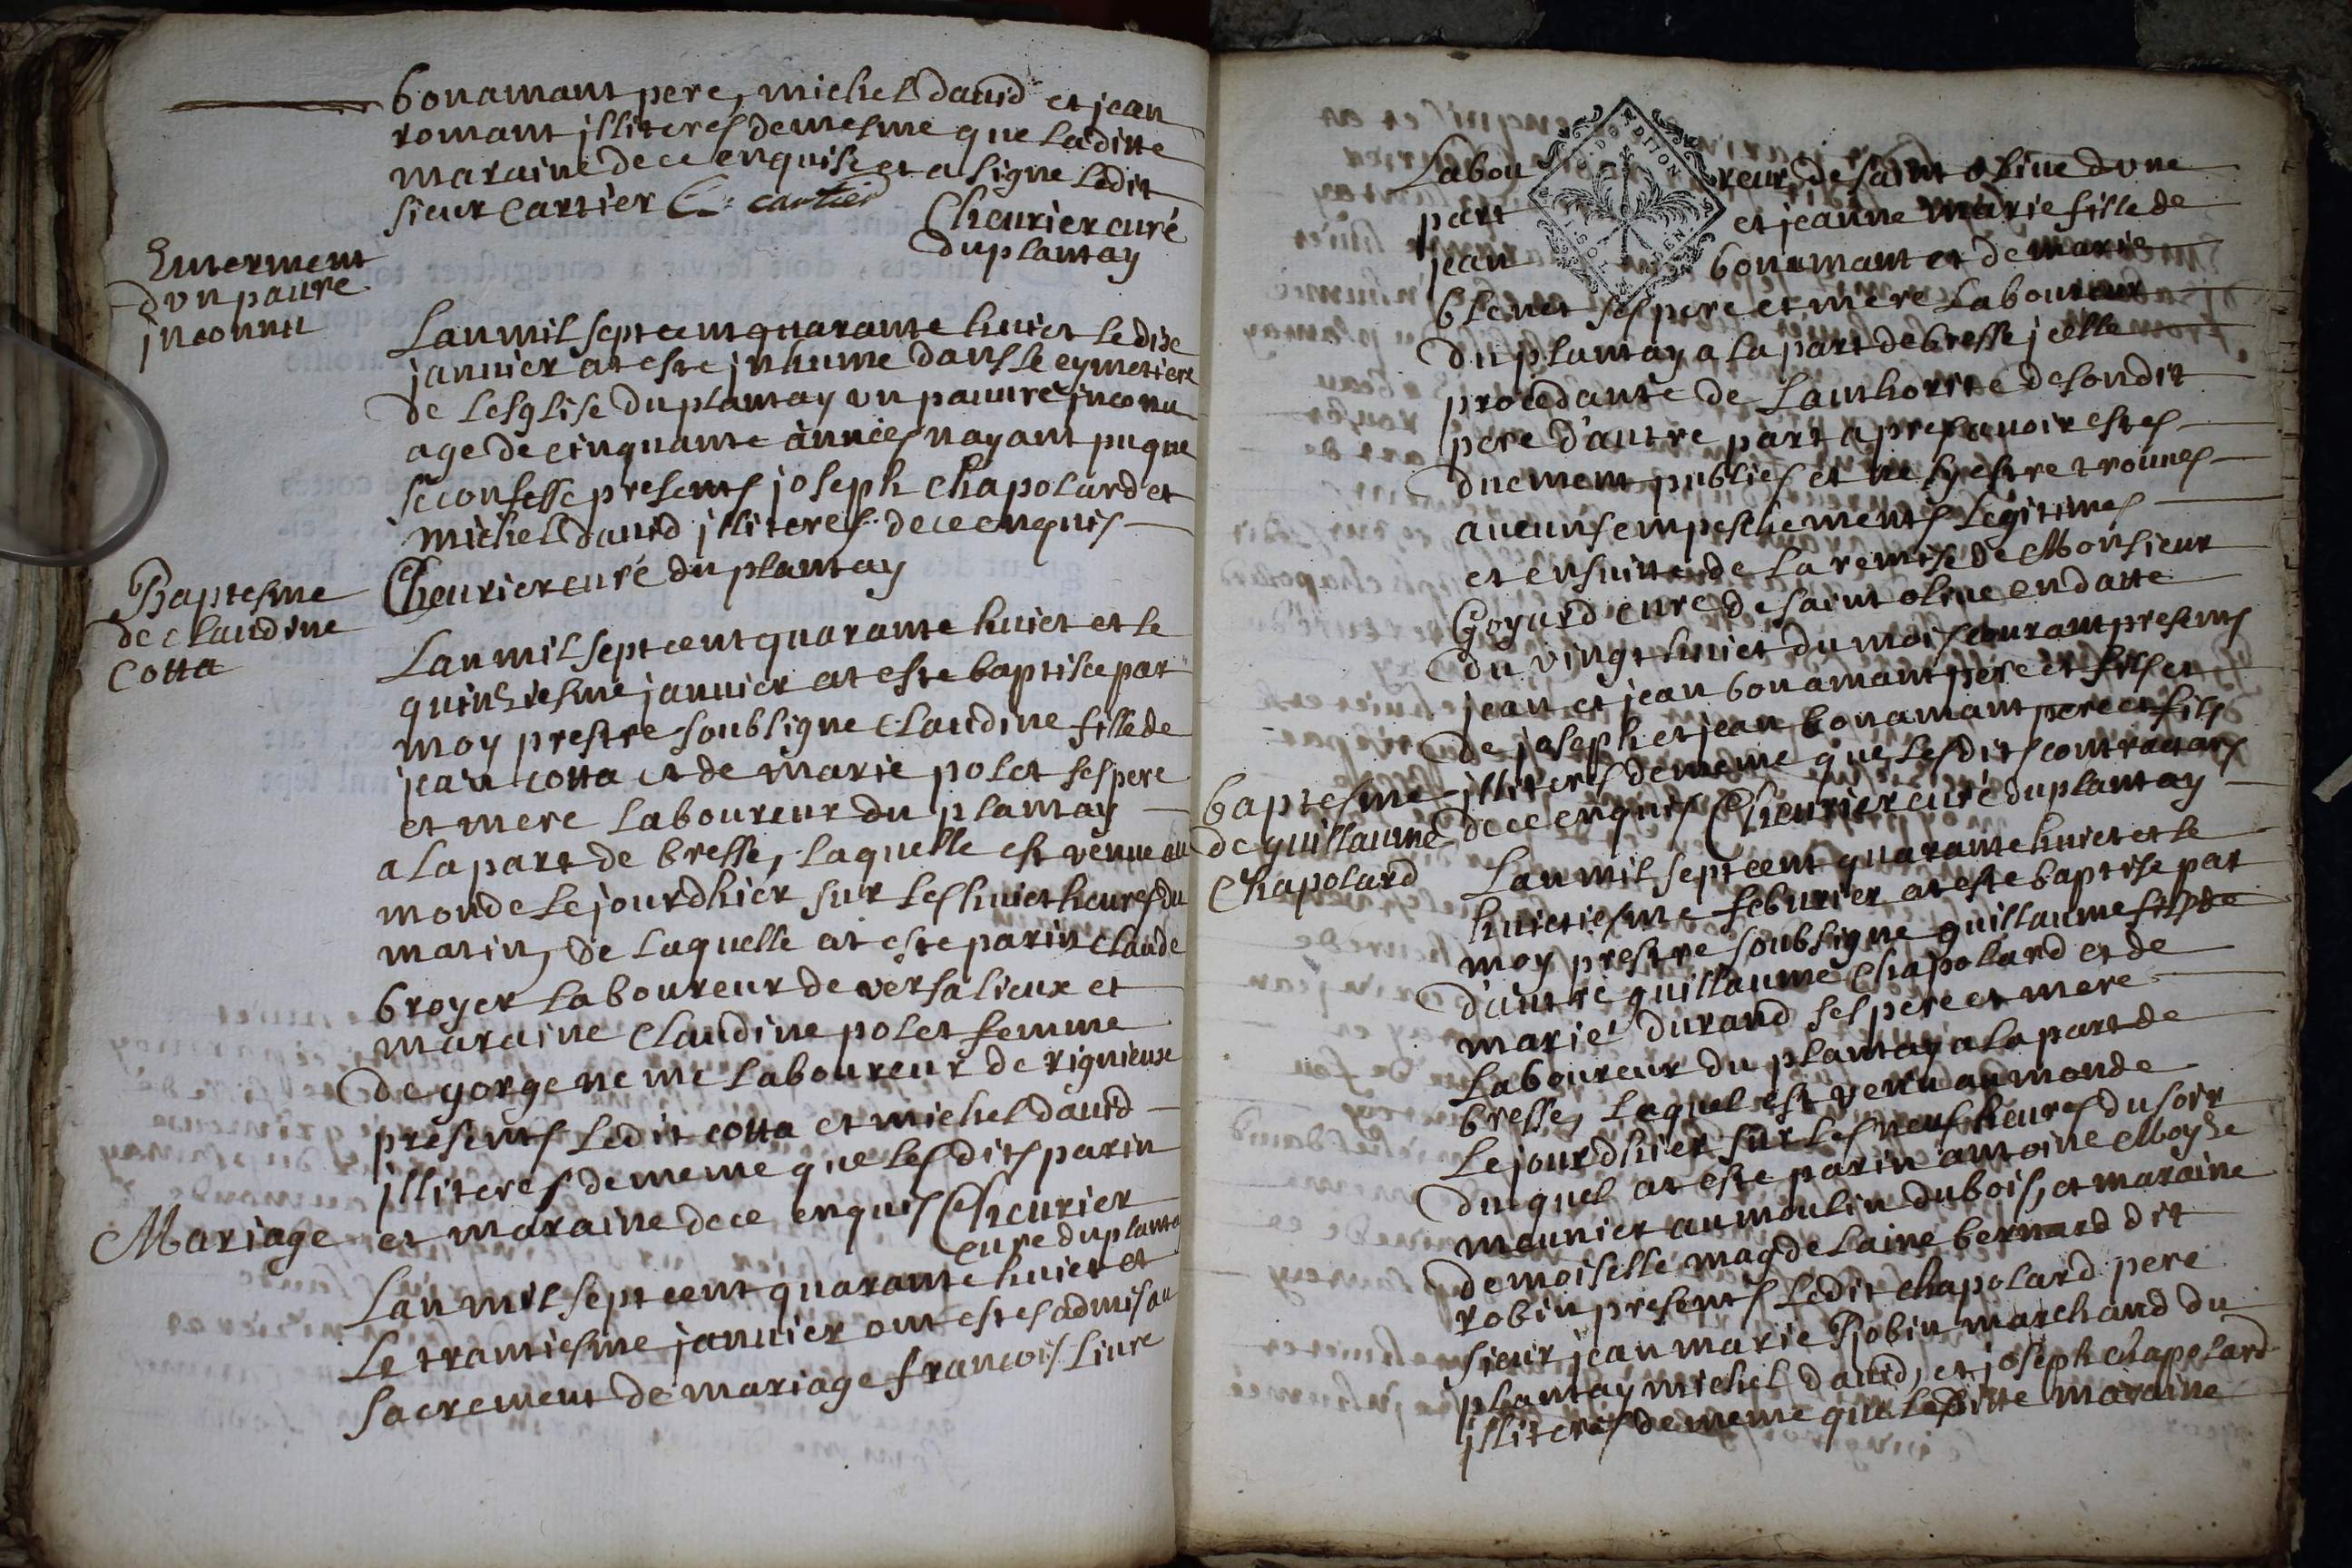 bonamant pere, michel dauid et jean
romant jlliteres de mesme que laditte
maraine de ce enquise et a signe ledit
sieur Cartier C. cartier
Cheurier curé
du plantay
Enterment
d vn pauure
jnconnu
Lan mil sept cent quarante huict le dixe
januier at este jnhume dans le cymetiere
de lesglise du plantay vn pauure jnconu
age de cinquante années nayant pu que
se confesse presents joseph Chapolard et
michel dauid jlliteres de ce enquis
Cheurier curé du plantay
Baptesme
de claudine
Cotta
Lan mil sept cent quarante huict et le
quinziesme januier at este baptisee par
moy prestre soubsigne Claudine fille de
jean cotta et de marie polet ses pere
et mere laboureur du plantay
a la part de bresse, laquelle est venue au
monde le jourdhier sur les huict heures du
matin, de laquelle at este parin claude
broyer laboureur de versalieux et
maraine Claudine polet femme
de gorge neme laboureur de rignieux
presents ledit cotta et michel dauid
jlliteres de meme que lesdits parin
et maraine de ce enquis Cheurier
curé du planta
Mariage
Lan mil sept cent quarante huict et
le trantiesme januier ont estes admis au
sacrement de mariage francois liure
Labou reur de saint oliue d vne
part et jeanne marie fille de
jean bonamant et de marie
blenet ses pere et mere laboureur
du plantay a la part de bresse jcelle
procedante de lauthorite de sondit
pere d'autre part apres auoir estes
duement publies et ne sy estre trouues
aucuns empeschements legitimes
et ensuitte de la remise de Monsieur
Goyard curé de saint oliue en datte
du vingt huict du mois courant presents
jean et jean bonamant pere et fils et
de joseph et jean bonamant pere et fils
jlliteres de meme que lesdits contractans
de ce enquis Cheurier curé du plantay
baptesme
de guillaume
Chapolard
Lan mil sept cent quarante huict et le
huictiesme feburier at este baptise par
moy prestre soubsigne guillaume fils de
d'autre guillaume Chapolard et de
marie durand ses pere et mere
laboureur du plantay a la part de
bresse, laquel est venu au monde
le jourdhier sur les neuf heures du soir
du quel at este parin antoine Moyse
meunier au moulin du bois, et maraine
demoiselle magdelaine bernard dit
robin presents ledit chapolard pere
sieur jean marie Robin marchand du
plantay michel dauid, et joseph chapolard
jlliteres de meme que laditte maraine